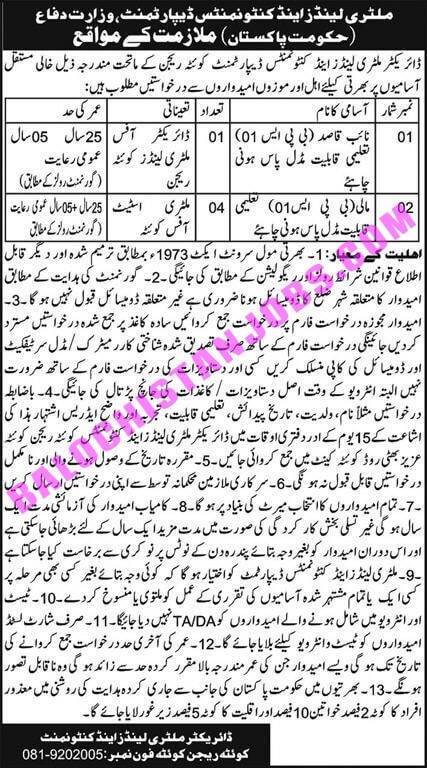 ملٹری لینڈز اینڈ کنٹونمنٹس ڈیپارٹمنٹ، وزارت دفاع
(حکومت پاکستان) ملازمت کے مواقع
ڈائریکٹر ملٹری لینڈز اینڈ کنٹونمنٹس ڈیپارٹمنٹ کوئٹہ ریجن کے ماتحت مندرجہ ذیل خالی مستقل
آسامیوں پر بھرتی کیلئے اہل اور موزوں امیدواروں سے درخواستیں مطلوب ہیں:
نمبر شمار آسامی کا نام تعداد تعیناتی عمر کی حد
01 نائب قاصد (بی پی ایس 01) تعلیمی قابلیت مڈل پاس ہونی چاہئے 01 ڈائریکٹر آفس ملٹری لینڈز کوئٹہ ریجن 25 سال 05 سال عمومی رعایت (گورنمنٹ رولز کے مطابق)
02 مالی (بی پی ایس 01) تعلیمی قابلیت مڈل پاس ہونی چاہئے 04 ملٹری اسٹیٹ آفس کوئٹہ 25 سال +05 سال عمومی رعایت (گورنمنٹ رولز کے مطابق)
اہلیت کے معیار: 1- بھرتی سول سرونٹ ایکٹ 1973ء بمطابق ترمیم شدہ اور دیگر قابل
اطلاع قوانین شرائط رولز اور ریگولیشن کے مطابق کی جائیگی۔ 2- گورنمنٹ کی ہدایت کے مطابق
امیدوار کا متعلقہ شہر ضلع کا ڈومیسائل ہونا ضروری ہے غیر متعلقہ ڈومیسائل قبول نہیں ہوگا۔ 3-
امیدوار مجوزہ درخواست فارم پر درخواست جمع کروائیں سادہ کاغذ پر جمع شدہ درخواستیں مسترد
کردیں جائینگی درخواست فارم کے ساتھ صرف تصدیق شدہ شناختی کارڈ میٹرک/ مڈل سرٹیفکیٹ
اور ڈومیسائل کی کاپی منسلک کریں کسی اور دستاویزات کی درخواست فارم کے ساتھ ضرورت
نہیں البتہ انٹرویو کے وقت اصل دستاویزات/ کاغذات کی جانچ پڑتال کی جائیگی۔ 4- باضابطہ
درخواستیں مثلاً نام، ولدیت، تاریخ پیدائش، تعلیمی قابلیت، تجربہ اور واضح ایڈریس اشتہار ہذا کی
اشاعت کے 15 یوم کے اندر دفتری اوقات میں ڈائریکٹر ملٹری لینڈز اینڈ کنٹونمنٹس کوئٹہ ریجن
عزیز بھٹی روڈ کوئٹہ کینٹ میں جمع کروائی جائیں۔ 5- مقررہ تاریخ کے وصول ہونے والی اور نامکمل
درخواستیں قابل قبول نہ ہونگی۔ 6- سرکاری ملازمین محکمانہ توسط سے اپنی درخواستیں ارسال کریں
7- تمام امیدواروں کا انتخاب میرٹ کی بنیاد پر ہوگا۔ 8- کامیاب امیدوار کی آزمائش مدت ایک
سال ہوگی غیر تسلی بخش کارکردگی کی صورت میں مدت مزید ایک سال کے لئے بڑھائی جاسکتی ہے
اور اس دوران امیدوار کو بغیر وجہ بتائے پندرہ دن کے نوٹس پر نوکری سے برخاست کیا جاسکتا ہے
9- ملٹری لینڈز اینڈ کنٹونمنٹس ڈیپارٹمنٹ کو اختیار ہوگا کہ کوئی وجہ بتائے بغیر کسی بھی مرحلہ پر
کسی ایک یا تمام مشتہر شدہ آسامیوں کی تقرری کے عمل کو ملتوی یا منسوخ کردے۔ 10- ٹیسٹ
اور انٹرویو میں شامل ہونے والے امیدواروں کو TA/DA نہیں دیا جائیگا۔ 11- صرف شارٹ لسٹڈ
امیدواروں کو ٹیسٹ و انٹرویو کیلئے بلایا جائے گا۔ 12- عمر کی آخری حد درخواست جمع کروانے کی
تاریخ تک ہوگی ایسے امیدوار جن کی عمر مندرجہ بالا مقرر کردہ حد سے زائد ہوگی وہ نااہل تصور
ہونگے۔ 13- بھرتیوں میں حکومت پاکستان کی جانب سے جاری کردہ ہدایت کی روشنی میں معذور
افراد کا کوٹہ 2 فیصد خواتین 10 فیصد اور اقلیت کا کوٹہ 5 فیصد زیر غور لایا جائے گا۔
ڈائریکٹر ملٹری لینڈز اینڈ کنٹونمنٹ
کوئٹہ ریجن کوئٹہ فون نمبر: 081-9202005
BALOCHISTANJOBS.COM